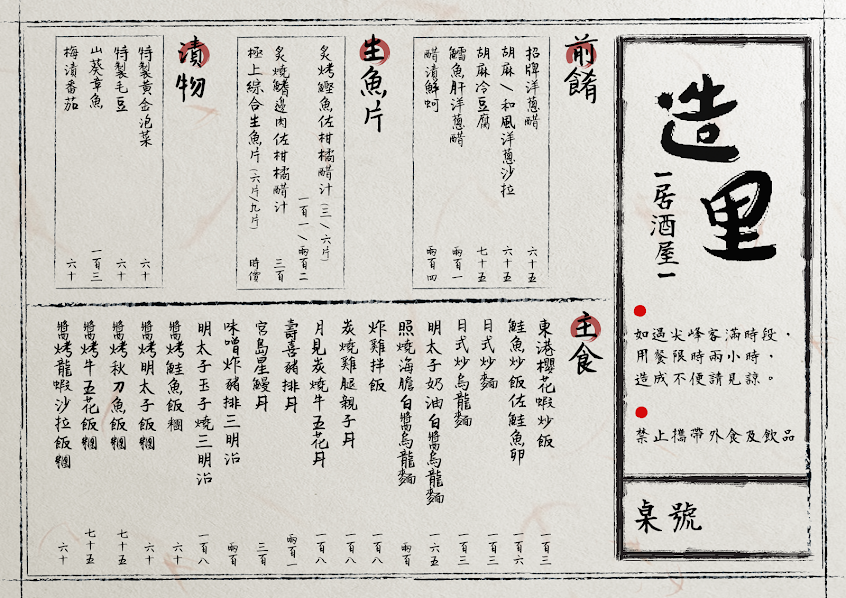 造里
一居酒屋一
如遇尖峰客滿時段，
用餐限時兩小時，
造成不便請見諒。
禁止攜帶外食及飲品
桌號
前餚
招牌洋蔥醋 六十五
胡麻\和風洋蔥沙拉 六十五
胡麻冷豆腐 七十五
鱈魚肝洋蔥醋 兩百一
醋漬鮮蚵 兩百四
生魚片
炙烤鰹魚佐柑橘醋汁(三/六片) 一百一/兩百二
炙燒鰭邊肉佐柑橘醋汁 三百
極上綜合生魚片(六片/九片) 時價
漬物
特製黃金泡菜 六十
特製毛豆 六十
山葵章魚 一百三
梅漬番茄 六十
主食
東港櫻花蝦炒飯 一百三
鮭魚炒飯佐鮭魚卵 一百六
日式炒麵 一百三
日式炒烏龍麵 一百三
明太子奶油白醬烏龍麵 一六五
照燒海膽白醬烏龍麵 兩百
炸雞拌飯 一百八
炭燒雞腿親子丹 一百八
月見炭燒牛五花丹 一百八
壽喜豬排丹 兩百一
宮島星鰻丹 三百
味噌炸豬排三明治 兩百
明太子玉子燒三明治 一百八
醬烤鮭魚飯糰 六十
醬烤明太子飯糰 六十
醬烤秋刀魚飯糰 七十五
醬烤牛五花飯糰 七十五
醬烤龍蝦沙拉飯糰 六十